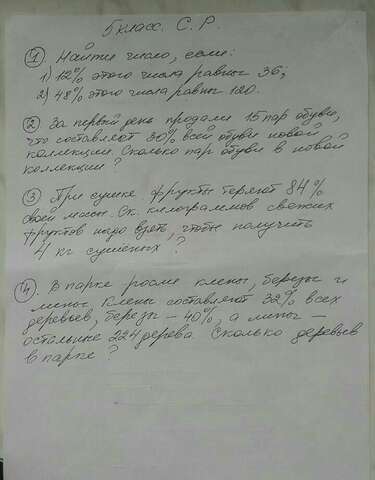 5 класс. С. Р.
① Найти число, если:
1) 12% этого числа равны 36;
2) 48% этого числа равны 120.
② За первый день продали 15 пар обуви,
что составляет 30% всей обуви новой
коллекции. Сколько пар обуви в новой
коллекции?
③ При сушке фрукты теряют 84%
своей массы. Ск. килограммов свежих
фруктов надо взять, чтобы получить
4 кг сушеных?
④. В парке росли клены, березы и
липы. Клены составляют 32% всех
деревьев, березы – 40%, а липы –
остальные 224 дерева. Сколько деревьев
в парке?